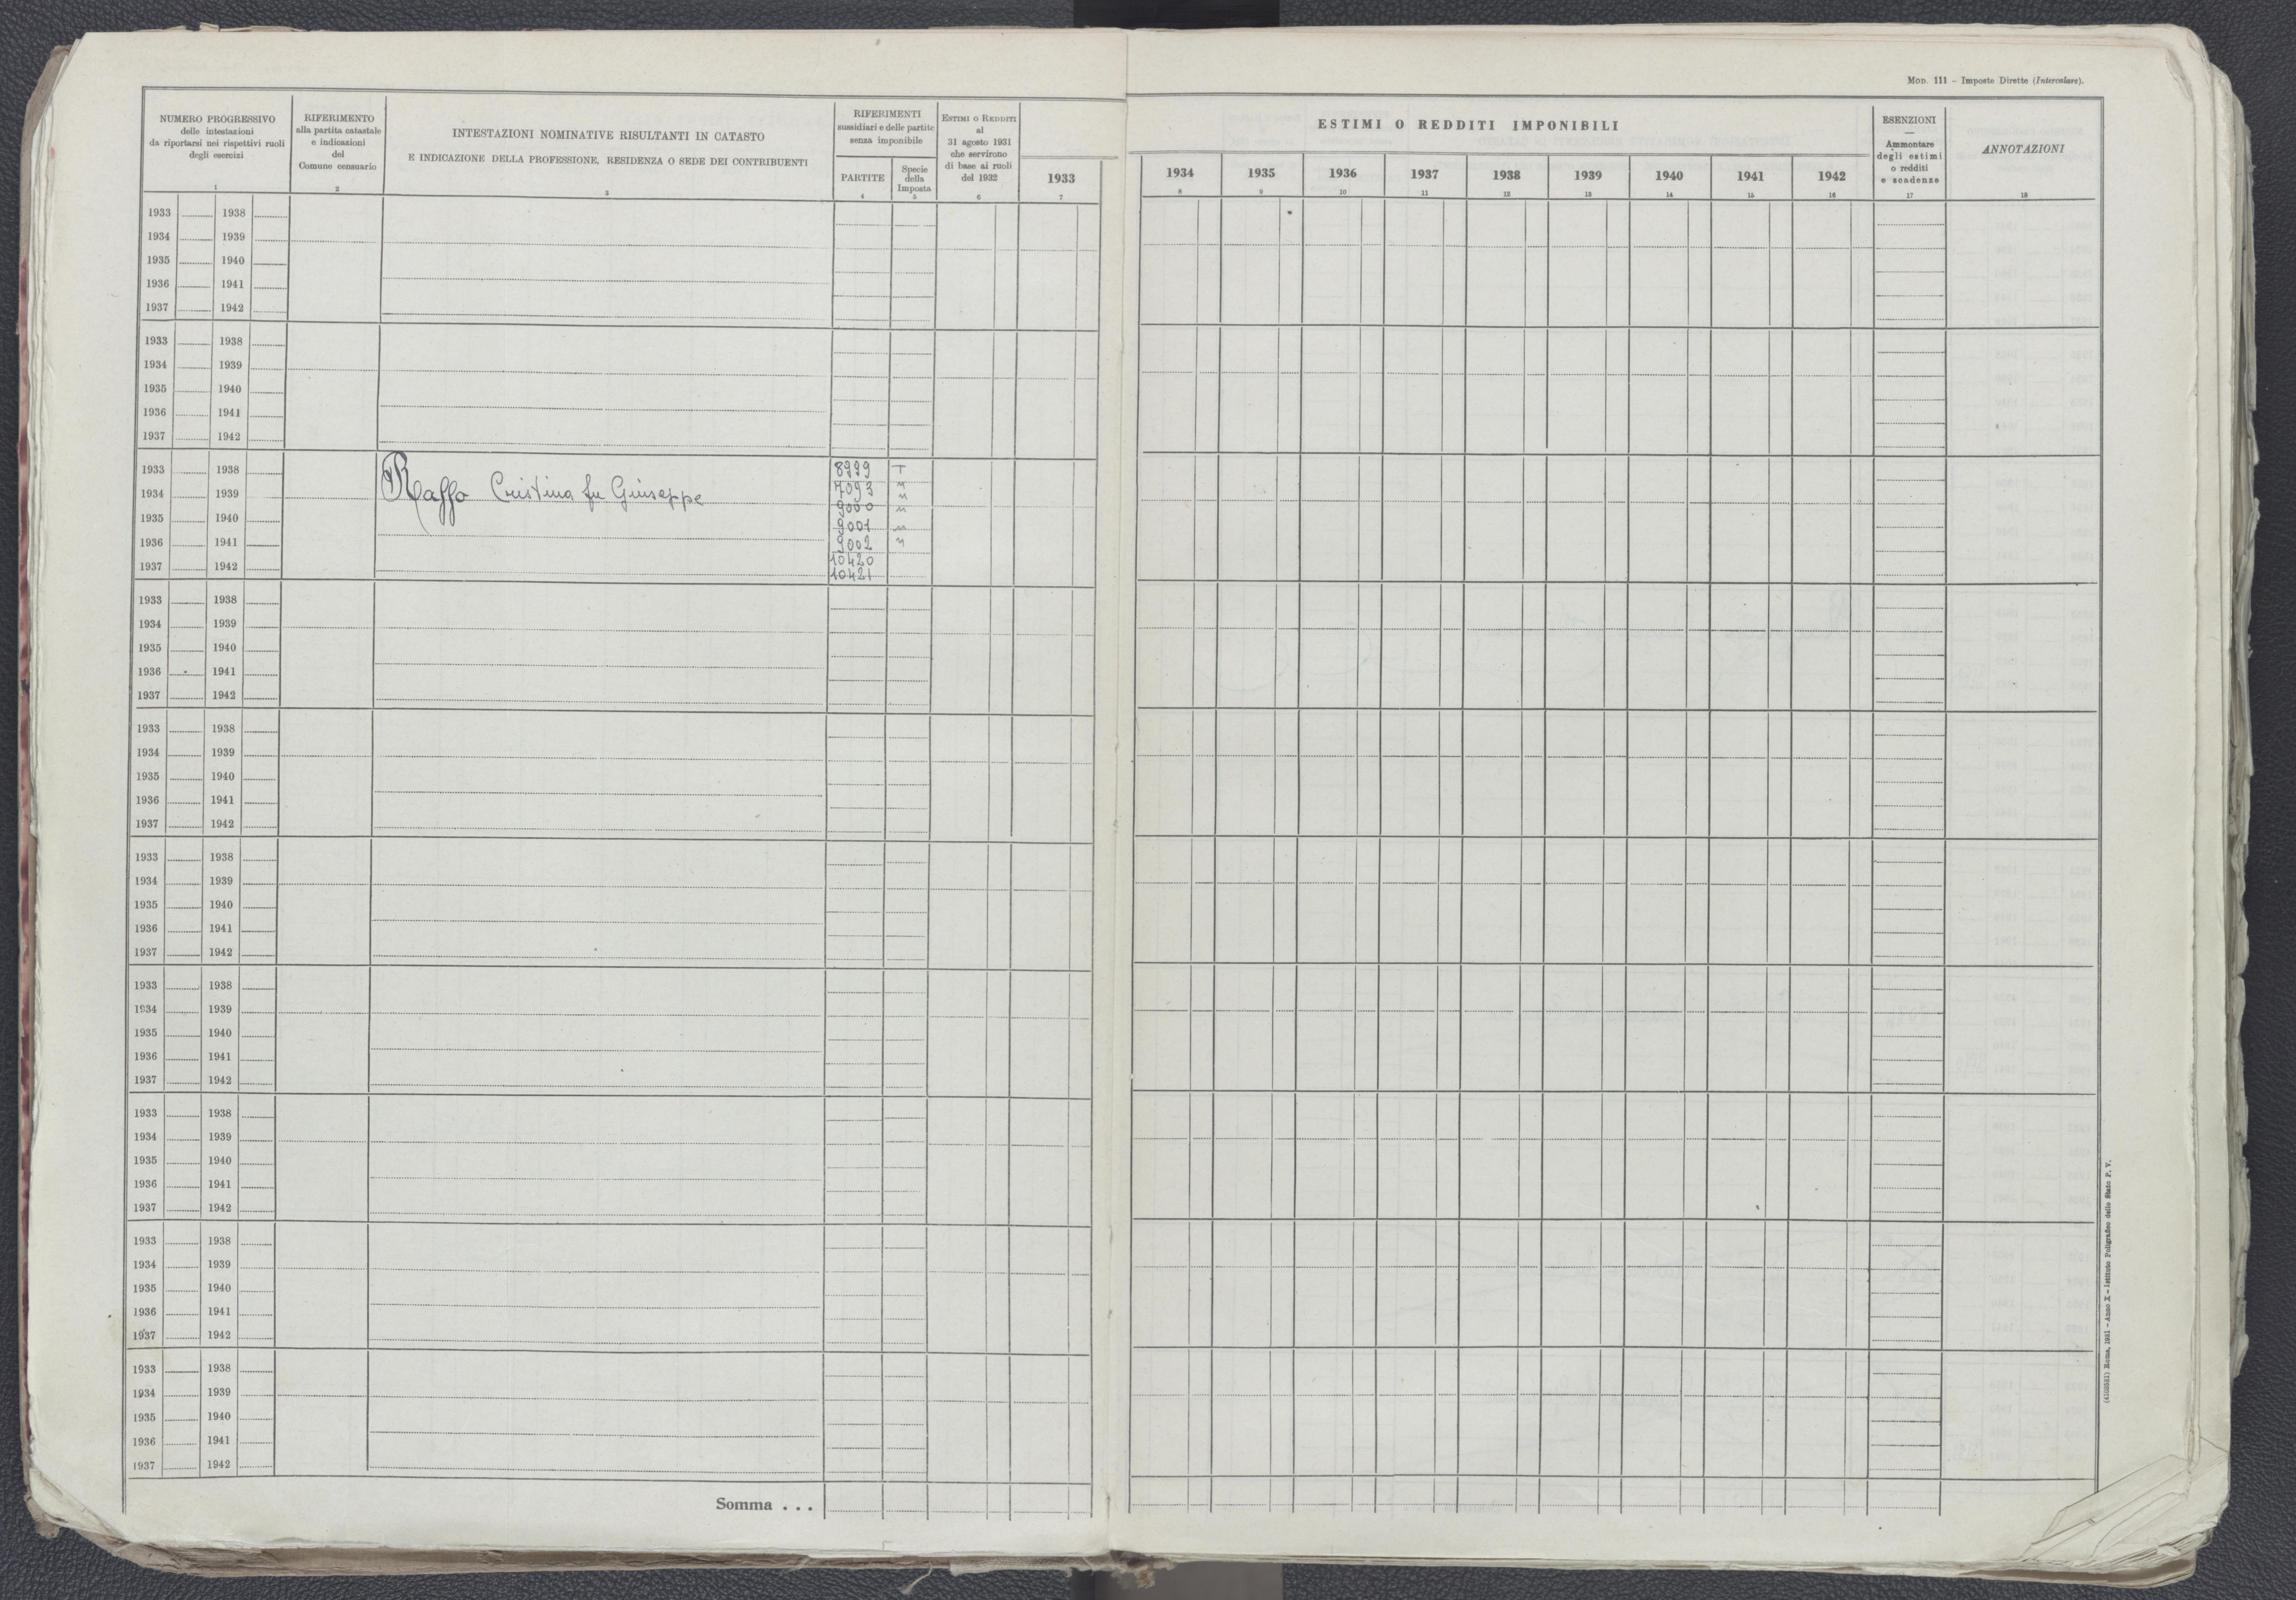 Mod. 111 - Imposte Dirette (Intercalare).
NUMERO PROGRESSIVO
delle intestazioni
da riportarsi nei rispettivi ruoli
degli esercizi
1
RIFERIMENTO
alla partita catastale
e indicazioni
del
Comune censuario
2
INTESTAZIONI NOMINATIVE RISULTANTI IN CATASTO
E INDICAZIONE DELLA PROFESSIONE, RESIDENZA O SEDE DEI CONTRIBUENTI
3
RIFERIMENTI
sussidiari e delle partite
senza imponibile
PARTITE
4
Specie
della
Imposta
5
ESTIMI O REDDITI
al
31 agosto 1931
che servirono
di base ai ruoli
del 1932
6
1933
7
ESTIMI O REDDITI IMPONIBILI
1934 1935 1936 1937 1938 1939 1940 1941 1942
8 9 10 11 12 13 14 15 16
ESENZIONI
—
Ammontare
degli estimi
o redditi
e scadenze
17
ANNOTAZIONI
18
1933 1938
1934 1939
1935 1940
1936 1941
1937 1942
1933 1938
1934 1939
1935 1940
1936 1941
1937 1942
1933 1938 8999 T
1934 1939 Raffo Cristina fu Giuseppe 7093 "
9000 "
1935 1940 9001 "
1936 1941 9002 "
10420
1937 1942 10421
1933 1938
1934 1939
1935 1940
1936 1941
1937 1942
1933 1938
1934 1939
1935 1940
1936 1941
1937 1942
1933 1938
1934 1939
1935 1940
1936 1941
1937 1942
1933 1938
1934 1939
1935 1940
1936 1941
1937 1942
1933 1938
1934 1939
1935 1940
1936 1941
1937 1942
1933 1938
1934 1939
1935 1940
1936 1941
1937 1942
1933 1938
1934 1939
1935 1940
1936 1941
1937 1942
Somma . . .
Roma, 1931 - Anno X - Istituto Poligrafico dello Stato P. V.